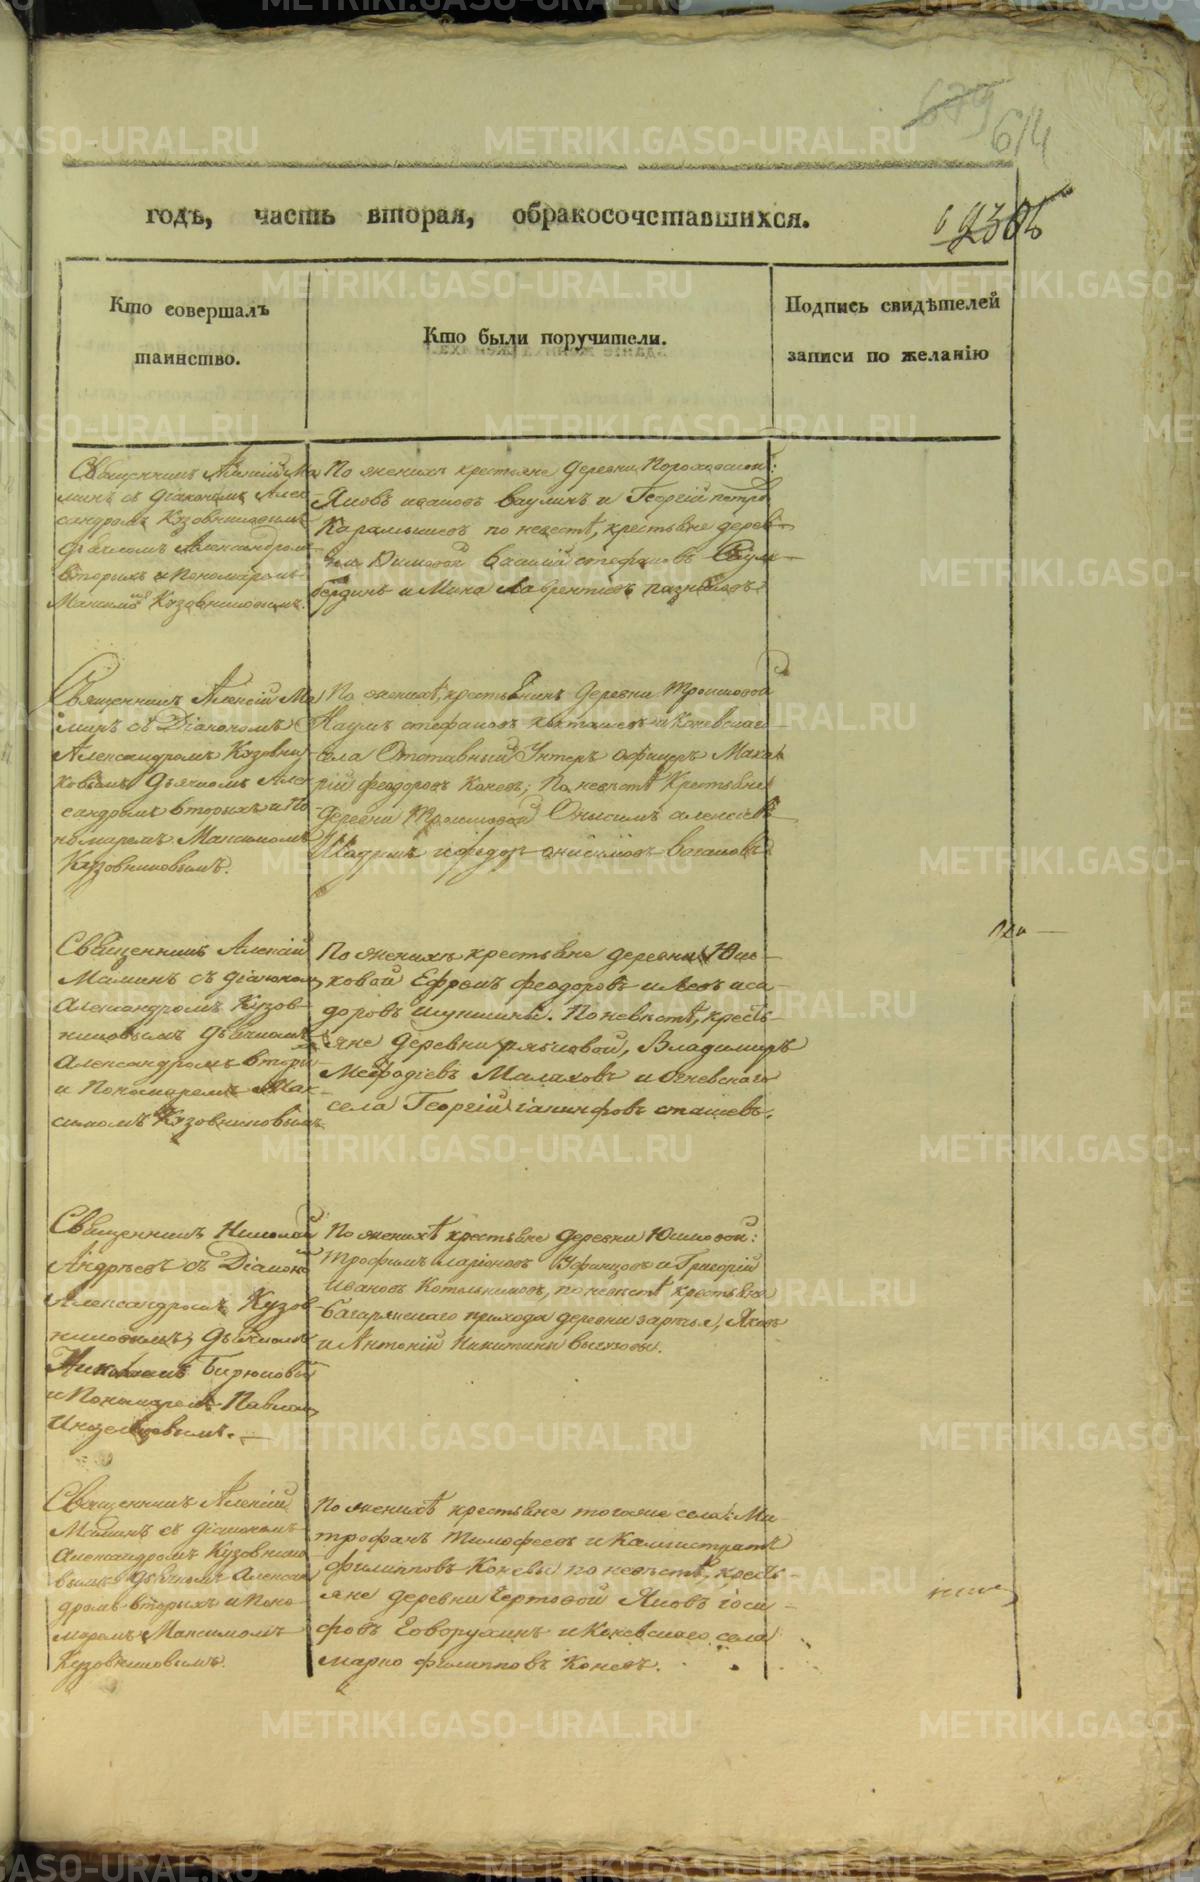 679
614
годъ, часть вторая, обракосочетавшихся.
Кто совершалъ
таинство.
Кто были поручители.
Подпись свидѣтелей
записи по желанію
Священникъ Алексій Ма
минъ съ діакономъ Алек
сандромъ Кузовниковымъ
дьячкомъ Александромъ
Вторыхъ и Пономаремъ
Максимомъ Кузовниковымъ.
По женихѣ крестьяне деревни
Яковъ Ивановъ Ваулинъ и Георгій Петро
по невестѣ, крестьяне дерев
ни Юшковой Василій Стефановъ
и Мина Лаврентіевъ
Священникъ Алексій Ма
минъ съ Діакономъ
Александромъ Кузовни
ковымъ дьячкомъ Алек
сандромъ Вторыхъ и По
номаремъ Максимомъ
Кузовниковымъ.
По женихѣ, крестьянинъ деревни
Наумъ Стефановъ и Коневскаго
села Отставный Унтеръ офицеръ Мака
рій Феодоровъ Коневъ; По невѣстѣ Крестьяне
деревни Онисимъ Алексіевъ
и Федоръ Онисимовъ
Священникъ Алексій
Маминъ съ діакономъ
Александромъ Кузов
никовымъ дьячкомъ
Александромъ Вторы
и Пономаремъ Мак
симомъ Кузовниковымъ
По женихѣ крестьяне деревни Юш
ковой Ефремъ Феодоровъ и Левъ Иса
доровъ Шунинины. По невѣстѣ, кресть
яне деревни Владимиръ
Мефодіевъ Малаховъ и Огневскаго
села Георгій Іакинфовъ Сташевъ.
Священникъ Николай
Андреевъ съ Діакономъ
Александромъ Кузов
никовымъ, дьячкомъ
Николаемъ Бирюковы
и Пономаремъ Павломъ
По женихѣ крестьяне деревни Юшковой:
Трофимъ Ларіоновъ Уфинцовъ и Григорій
Ивановъ Котельниковъ, по невѣстѣ крестьяне
Багарякскаго прихода деревни Яковъ
и Антоній Никитины
Священникъ Алексій
Маминъ съ діакономъ
Александромъ Кузовнико
вымъ дьячкомъ Алексан
дромъ Вторыхъ и Поно
маремъ Максимомъ
Кузовниковымъ.
По женихѣ крестьяне тогоже села: Ми
трофанъ Тимофеевъ и Каллистратъ
Филипповъ Коневы по невѣстѣ, кресть
яне деревни Чертовой Яковъ Іоси
фовъ Говорухинъ и Коневскаго села
Марко Филипповъ Коневъ.
METRIKI.GASO-URAL.RU